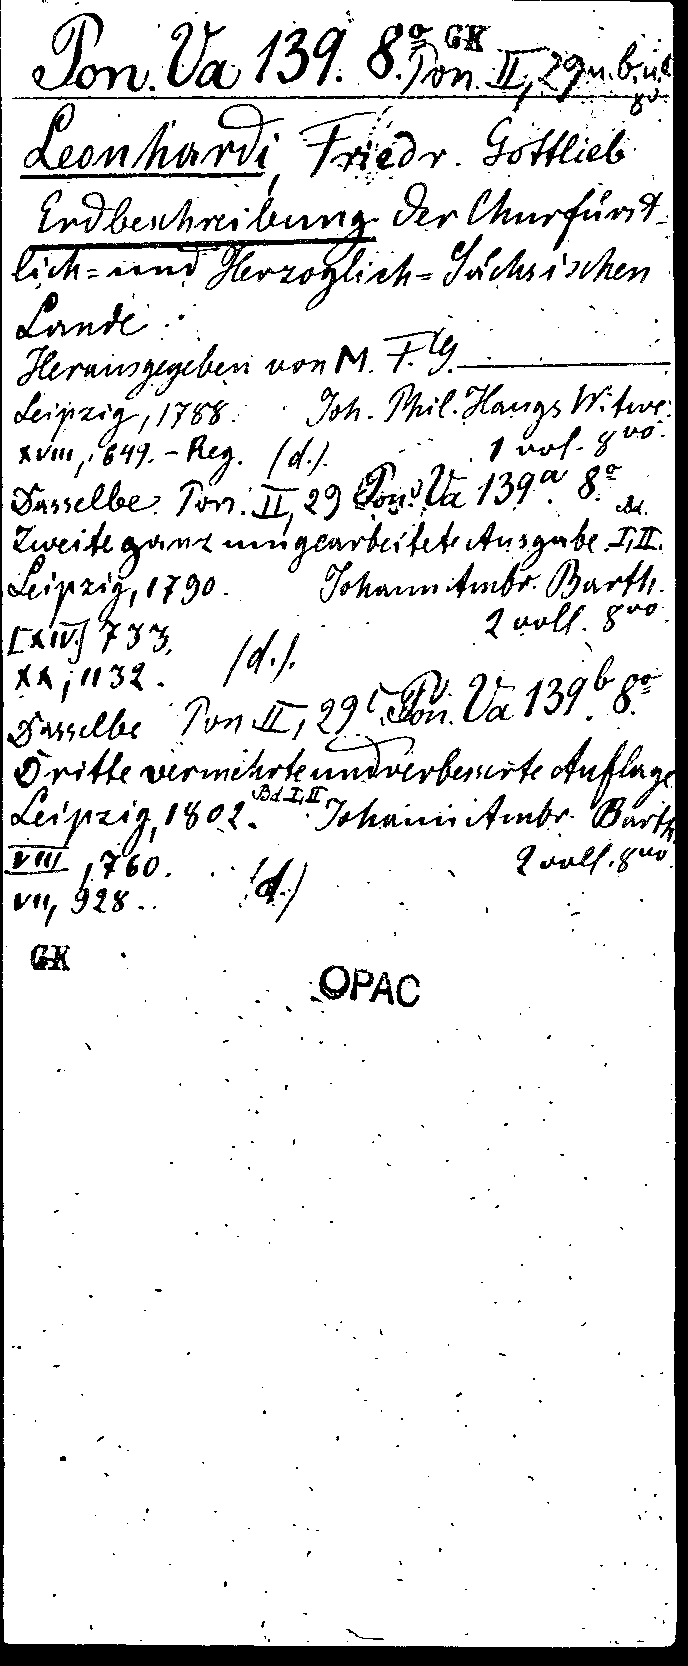 Pon. Va 139. 8º GK Pon. II, 29 u. b. u. c
8º
Leonhardi, Friedr. Gottlieb
Erdbeschreibung der Churfürst-
lich= und Herzoglich= Sächsischen
Lande.
Herausgegeben von M. F. G. ———
Leipzig, 1788. Joh. Phil. Haugs Witwe.
XVIII, 849. - Reg. (d.). 1 vol. 8vo.
Dasselbe. Pon. II, 29 b Pon. Va 139a. 8º
Zweite ganz umgearbeitete Ausgabe. Bd. I, II.
Leipzig, 1790. Johann Ambr. Barth.
[XIV] 733. 2 voll. 8vo
XX, 1132. (d.).
Dasselbe Pon. II, 29 c. Pon. Va 139b. 8º
Dritte vermehrte und verbesserte Auflage
Leipzig, 1802. Bd. I, II Johann Ambr. Barth.
VIII, 760. 2 voll. 8vo
VII, 928. (d.)
GK
OPAC